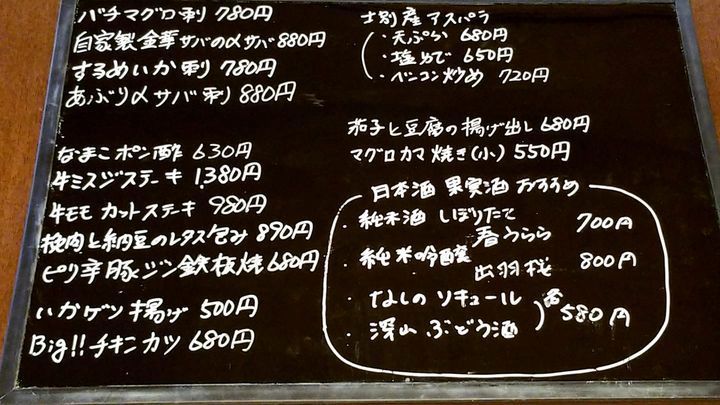 バチマグロ刺 780円
自家製金華サバの〆サバ 880円
するめいか刺 780円
あぶり〆サバ刺 880円
なまこポン酢 630円
牛ミスジステーキ 1,380円
牛モモカットステーキ 980円
挽肉と納豆のレタス包み 890円
ピリ辛豚ジン鉄板焼 680円
いかゲソ揚げ 500円
Big!!チキンカツ 680円
士別産アスパラ
・天ぷら 680円
・塩ゆで 650円
・ベーコン炒め 720円
茄子と豆腐の揚げ出し 680円
マグロカマ焼き(小) 550円
日本酒 果実酒 おすすめ
・純米酒 しぼりたて
春うらら 700円
・純米吟醸
出羽桜 800円
・なしのリキュール
・深山ぶどう酒 各580円